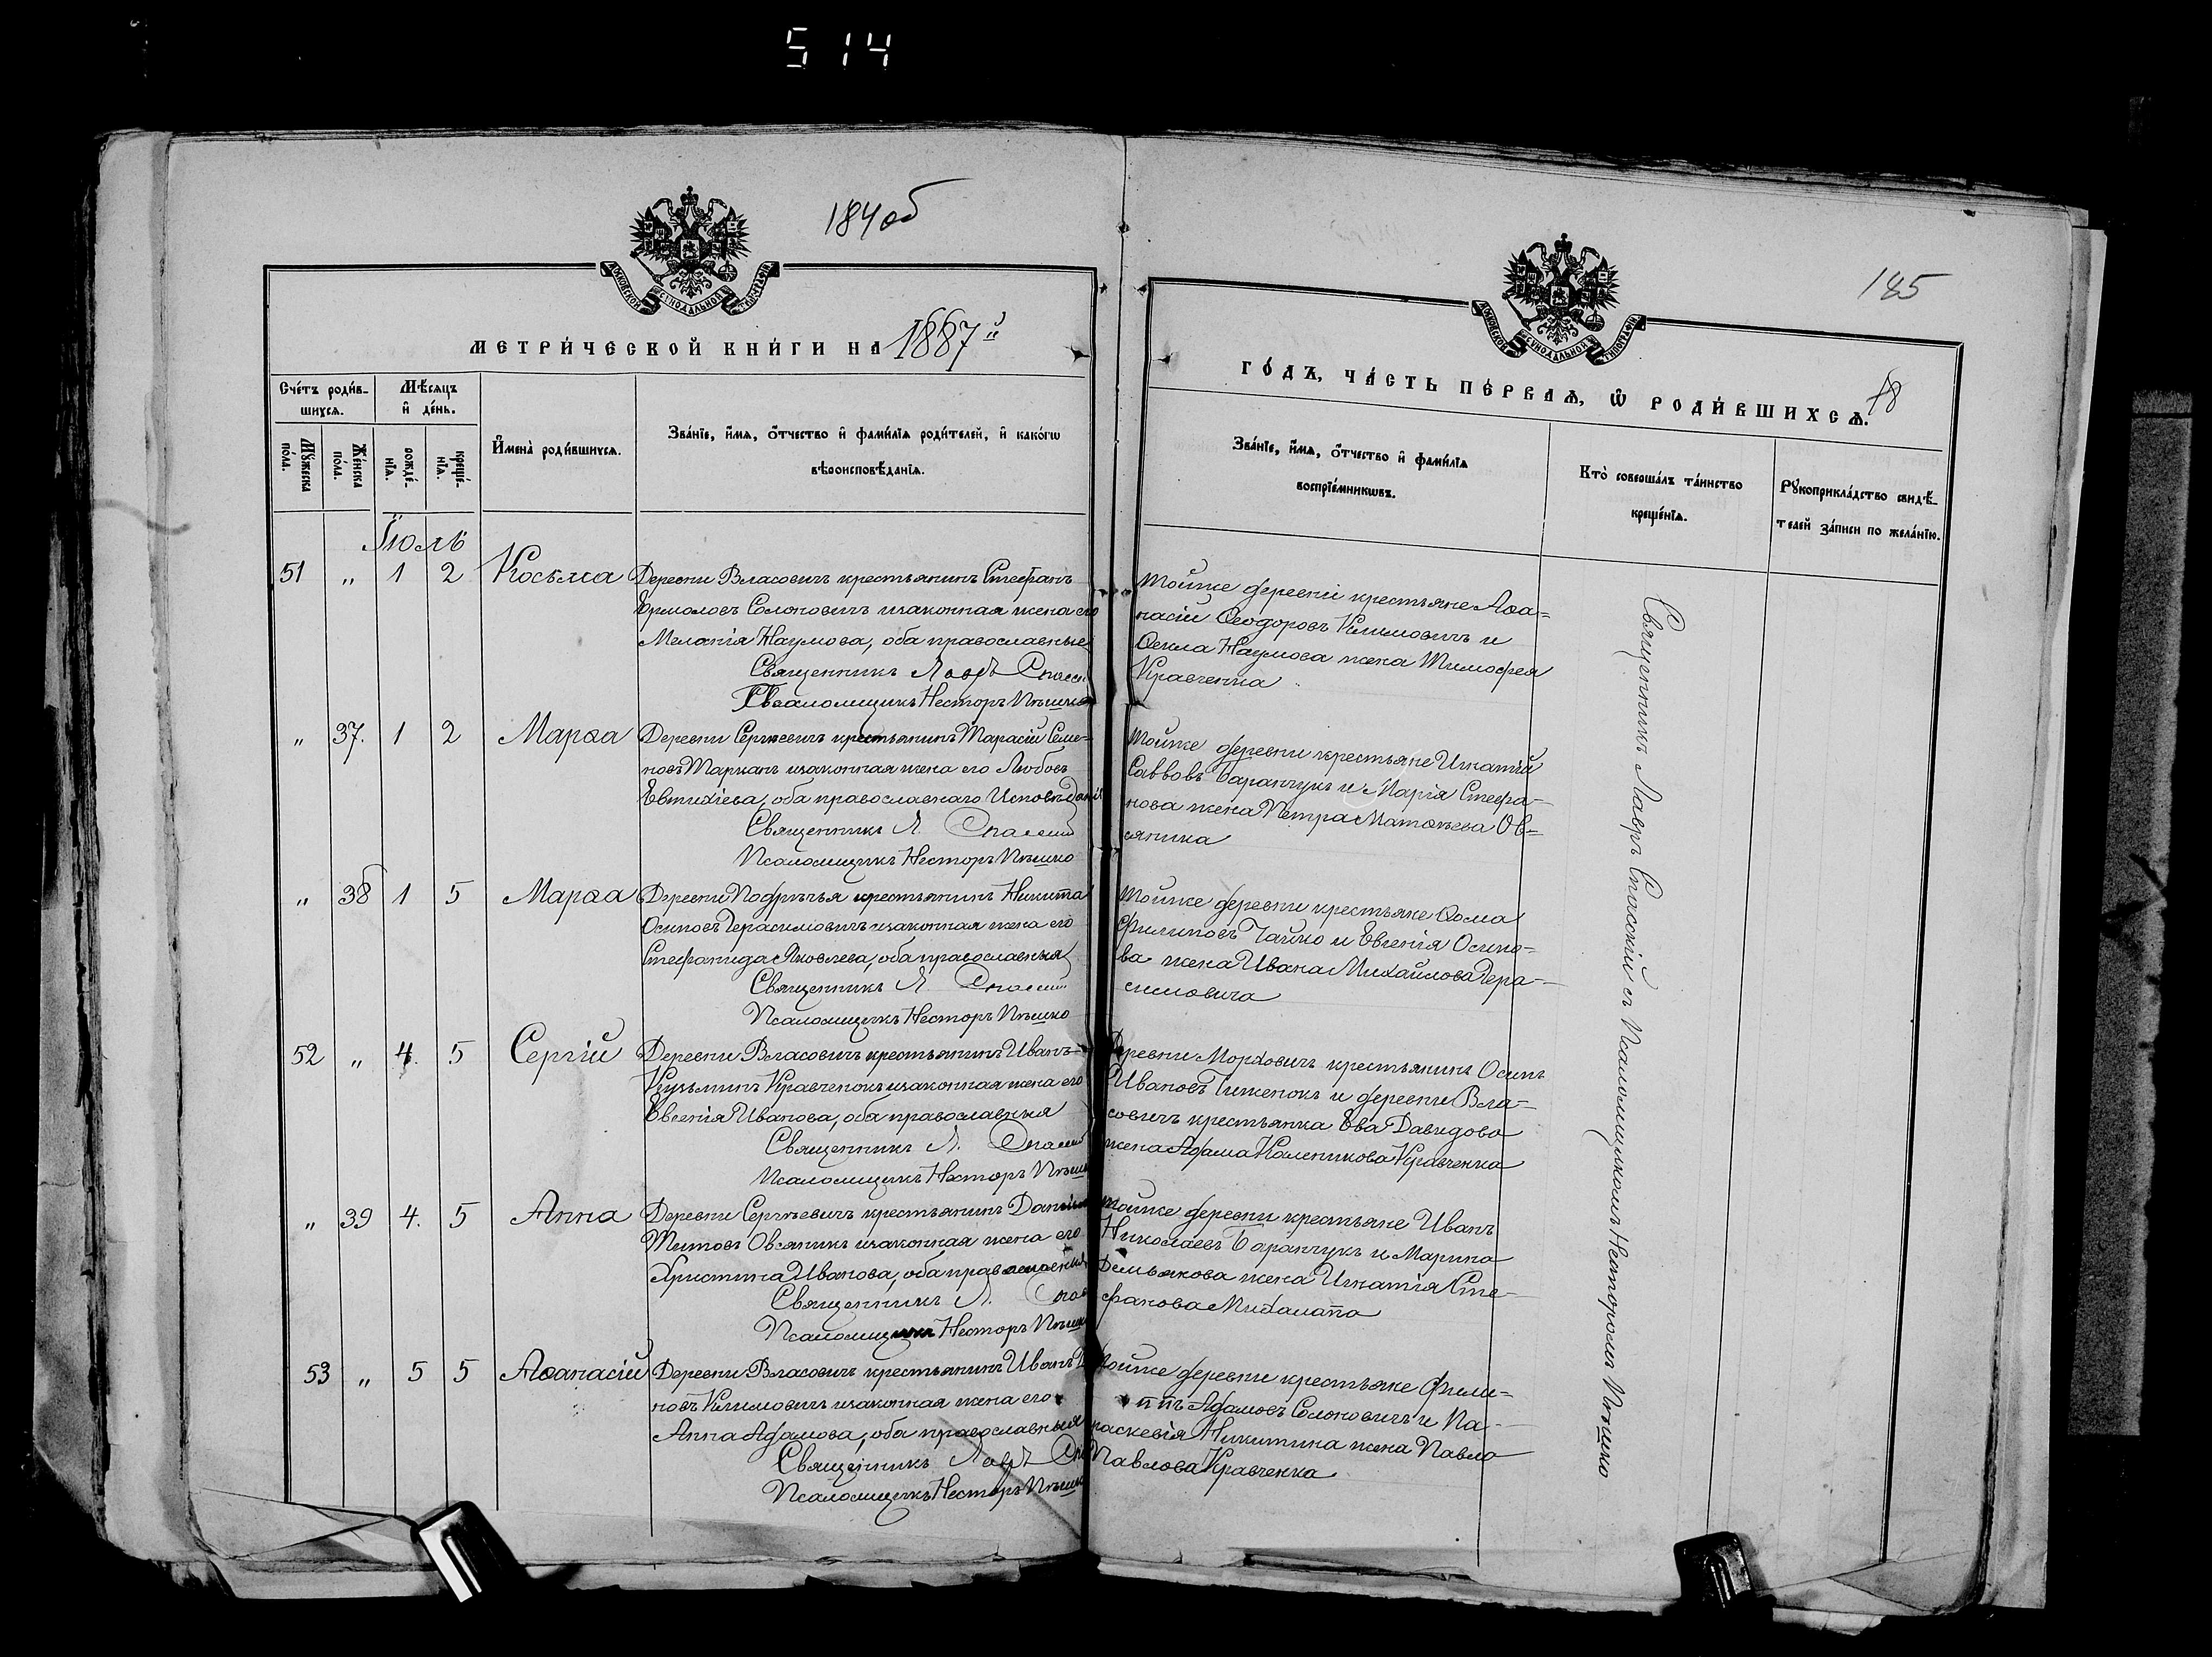 514
184об
МЕТРИЧЕСКОЙ КНИГИ НА 1887й
Счетъ родившихся.
Мѣсяцъ и день.
Мужеска пола.
Женска пола.
рожденія.
крещенія.
Имена родившихся.
Званіе, имя, отчество и фамилія родителей, и какогѡ
вѣроисповѣданія.
Іюль
51 „ 1 2 Косьма Деревни Власовичъ крестьянинъ Стефанъ
Ермоловъ Солоновичъ изаконная жена его
Меланія Наумова, оба православные
Священникъ Лавръ
Псаломщикъ Несторъ Пѣшко
„ 37. 1 2 Марѳа Деревни Сергѣевичъ крестьянинъ Тарасій Семе-
новъ Таркан изаконная жена его Любовь
Евтихіева, оба православнаго Исповѣданія
Священникъ Л. Спасскій
Псаломщикъ Несторъ Пѣшко
„ 38 1 5 Марѳа Деревни Подрѣчья крестьянинъ Никита
Осиповъ Герасимовичъ изаконная жена его
Стефанида Яковлева, оба православныя
Священникъ Л. Спасскій
Псаломщикъ Несторъ Пѣшко
52 „ 4. 5 Сергій Деревни Власовичъ крестьянинъ Иванъ
Кузьминъ Кравченокъ изаконная жена его
Евгенія Иванова, оба православныя
Священникъ Л. Спасскій
Псаломщикъ Несторъ Пѣшко
„ 39 4. 5 Анна Деревни Сергѣевичъ крестьянинъ Даніилъ
Титовъ Овсяникъ изаконная жена его
Христина Иванова, оба православныя
Священникъ Л.
Псаломщикъ Несторъ Пѣшко
53 „ 5 5 Аѳанасій Деревни Власовичъ крестьянинъ Иванъ
новъ Климовичъ изаконная жена его
Анна Адамова, оба православныя
Священникъ Лавръ
Псаломщикъ Несторъ Пѣшко
185
ГОДЪ, ЧАСТЬ ПЕРВАЯ, Ѡ РОДИВШИХСЯ. 78
Званіе, имя, отчество и фамилія
воспріемниковъ.
Кто совершалъ таинство
крещенія.
Рукоприкладство свидѣ-
телей записи по желанію.
Тойже деревни крестьяне Аѳа-
насій Ѳеодоровъ Климовичъ и
Ѳекла Наумова жена Тимофея
Кравченка
Тойже деревни крестьяне Игнатій
Саввовъ Баранчукъ и Марія Стефа-
нова жена Петра Матѳѣева Ов-
сяника
Тойже деревни крестьяне Ѳома
Филиповъ Чайко и Евгенія Осипо-
ва жена Ивана Михайлова Гера-
симовича
Деревни Морховичъ крестьянинъ Осипъ
Ивановъ Чиженокъ и деревни Вла-
совичъ крестьянка Ева Давидова
жена Адама Каленикова Кравченка
Тойже деревни крестьяне Иванъ
Николаевъ Баранчукъ и Марина
Демьянова жена Игнатія Сте-
фанова Михалапа
Тойже деревни крестьяне Фили-
ппъ Адамовъ Солоновичъ и Па-
раскевія Никитина жена Павла
Павлова Кравченка
Священникъ Лавръ Спасскій съ Псаломщикомъ Несторомъ Пѣшко